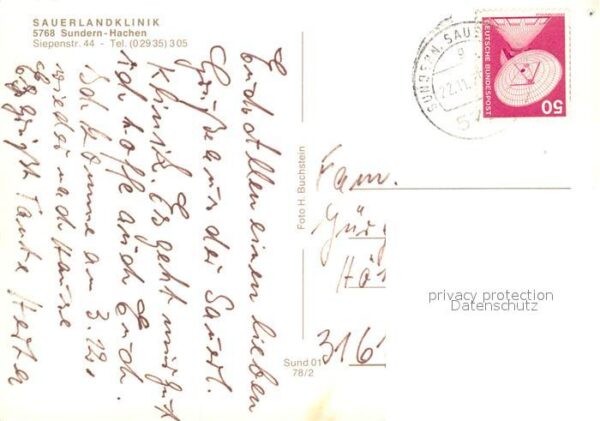 SAUERLANDKLINIK
5768 Sundern-Hachen
Siepenstr. 44 - Tel. (0 29 35) 3 05
Euch Allen einen lieben
Gruß aus der Sauerl.
Klinik. Es geht mir gut
ich hoffe auch Euch.
Ich komme am 3.12.
wieder nach Hause
Es grüßt Tante Herta
Foto H. Buchstein
Sund 01
78/2
SUNDERN, SAUE
22.11.
57
DEUTSCHE BUNDESPOST
50
Fam.
316
privacy protection
Datenschutz